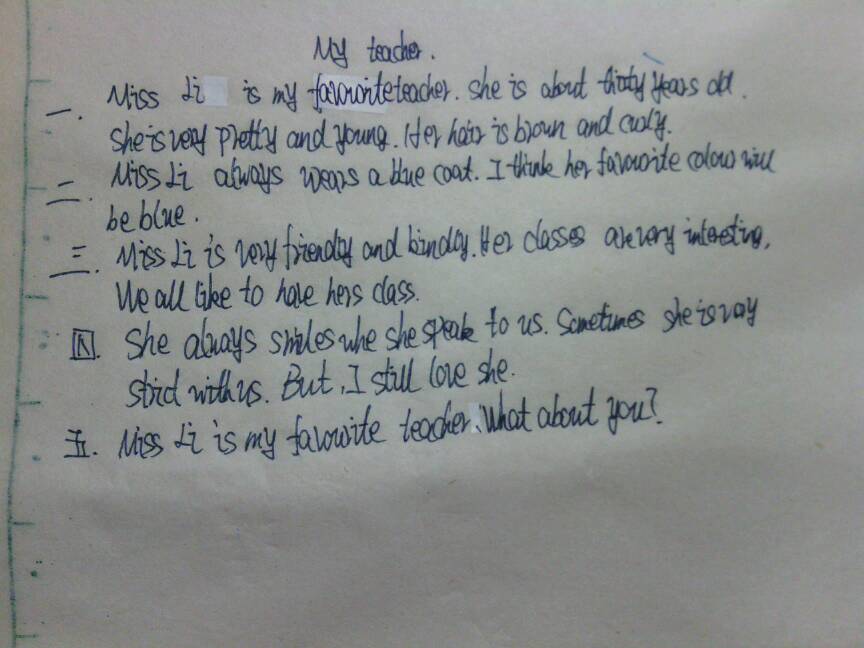 My teacher.
一. Miss Li is my favourite teacher. She is about thirty years old.
She is very pretty and young. Her hair is brown and curly.
二. Miss Li always wears a blue coat. I think her favourite colour will
be blue.
三. Miss Li is very friendly and kindly. Her classes are very interesting.
We all like to have hers class.
四. She always smiles whe she speak to us. Sometimes she is very
strict with us. But, I still love she.
五. Miss Li is my favourite teacher. What about you?